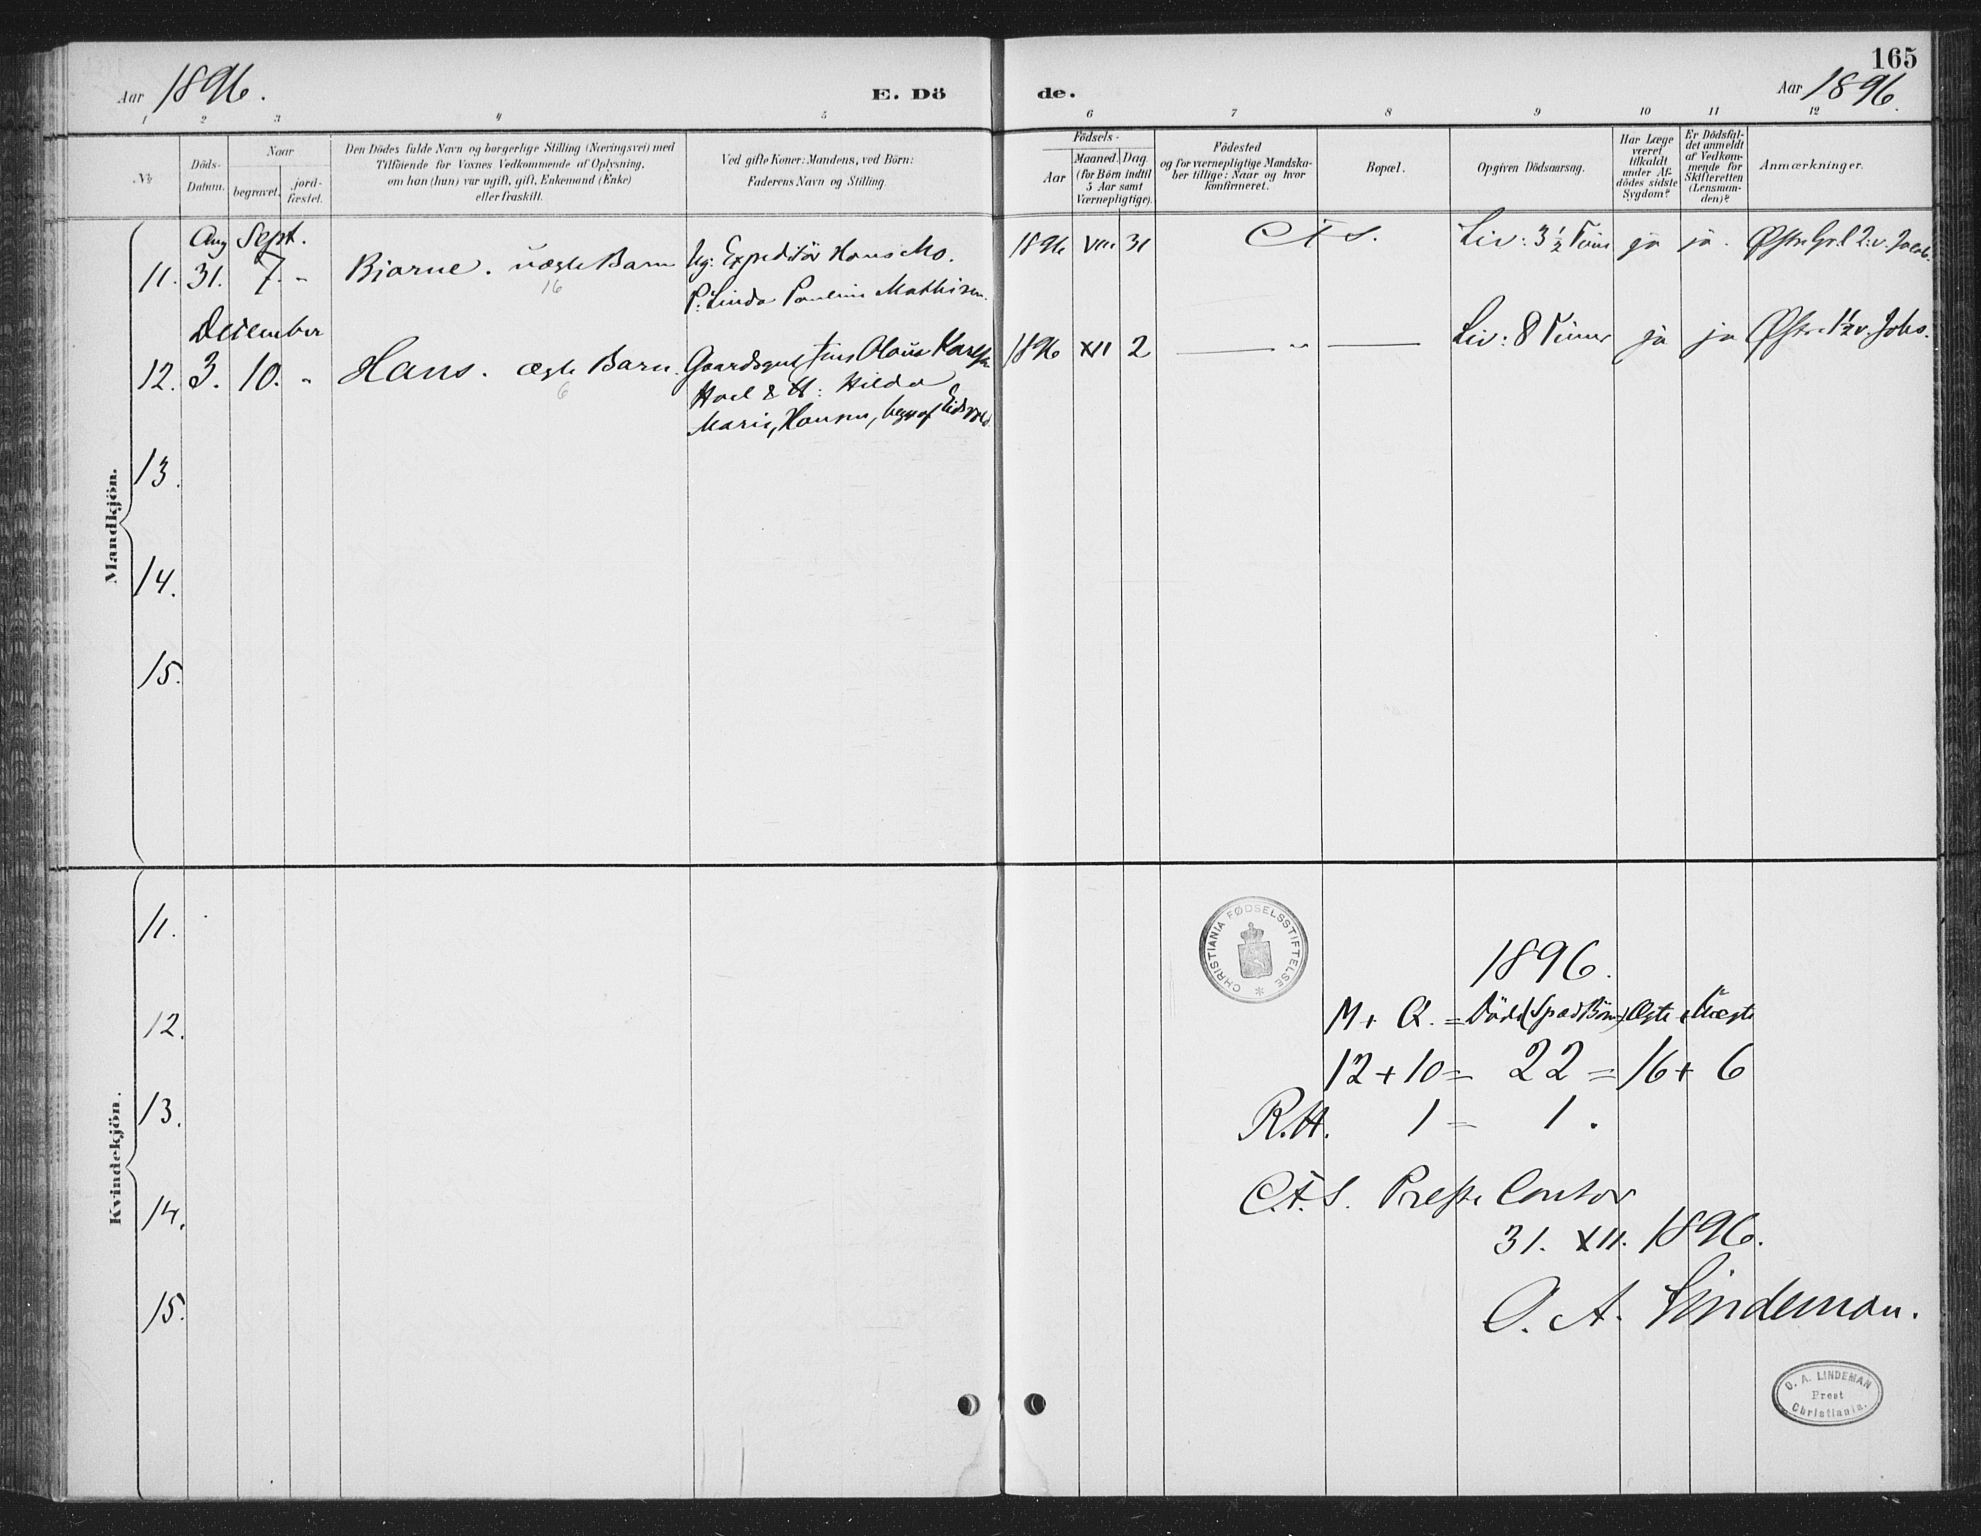 165
Aar 1896.
E. Döde.
Aar 1896.
1 2 3 4 5 6 7 8 9 10 11 12
No
Döds-
Datum.
Naar
begravet.
jord-
fæstet.
Den Dödes fulde Navn og borgerlige Stilling (Næringsvei) med
Tilföiende for Voxnes Vedkommende af Oplysning,
om han (hun) var ugift, gift, Enkemand (Enke)
eller fraskilt.
Ved gifte Koner: Mandens, ved Börn:
Faderens Navn og Stilling.
Födsels-
Aar
Maaned. Dag
(for Börn indtil
5 Aar samt
Værnepligtige).
Födested
og for værnepligtige Mandska-
ber tillige: Naar og hvor
konfirmeret.
Bopæl.
Opgiven Dödsaarsag.
Har Læge
været
tilkaldt
under Af-
dödes sidste
Sygdom?
Er Dödsfal-
det anmeldt
af Vedkom-
mende for
Skifteretten
(Lensman-
den)?
Anmærkninger.
Mandkjön.
Aug Sept.
11. 31. 7. " Bjarne. uægte Barn
16
Ug: Expeditör Hans Mo.
P: Linda Pauline Mathisen.
1896 VIII 31 C F S. Liv: 3 ½ Timer ja ja. Østre Grl 2: v. Jacob.
December
12. 3. 10. " Hans. ægte Barn.
6
Gaardsgut Olaus Karlsen
Hoel & H: Hilda
Marie, Hansen, begge af Eidsvold.
1896 XII 2 — " — Liv: 8 Timer ja ja Østre 1½ v. Johs.
13.
14.
15.
Kvindekjön.
11.
12.
13.
14.
15.
CHRISTIANIA FØDSELSSTIFTELSE
1896.
M + Q. = Döde (Spæd Börn) Ægte + Uægte
12 + 10 = 22 = 16 + 6
R.H. 1 = 1.
C.F.S. Preste Contor
31. XII. 1896.
O. A. Lindeman.
O. A. LINDEMAN
Prest
Christiania.